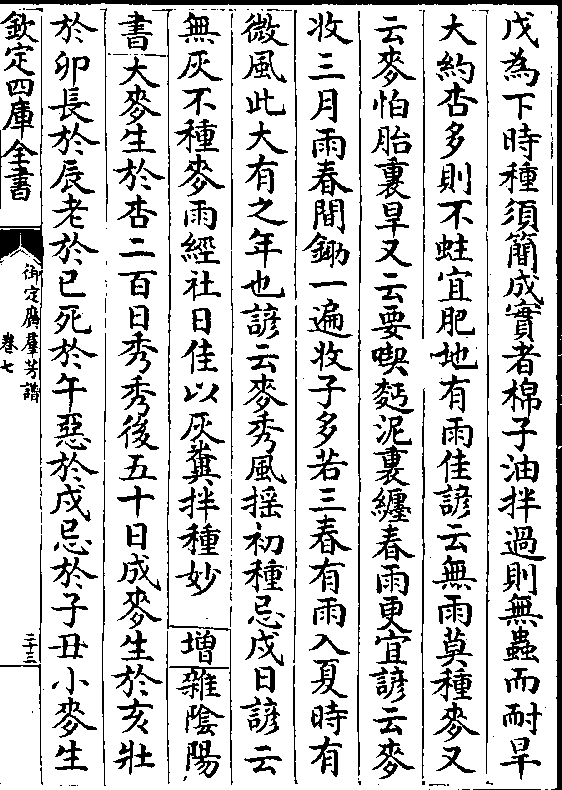 戊為下時種須簡成實者棉子油拌過則無蟲而耐旱
大約杏多則不蛀宜肥地有雨佳諺云無雨莫種麥又
云麥怕胎裏旱又云要喫麪泥裏纏春雨更宜諺云麥
收三月雨春間鋤一遍收子多若三春有雨入夏時有
微風此大有之年也諺云麥秀風揺初種忌戊日諺云
無灰不種麥雨經社日佳以灰糞拌種妙　増雜隂陽
書大麥生於杏二百日秀秀後五十日成麥生於亥壯
於卯長於辰老於巳死於午惡於戌忌於子丑小麥生
欽定四庫全書
御定廣羣芳譜
卷七
三十三